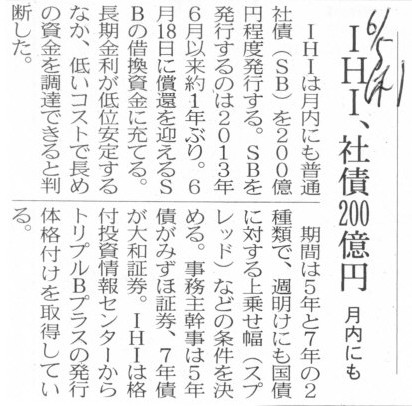 6/5(木)
IHI、社債200億円 月内にも
IHIは月内にも普通
社債（SB）を200億
円程度発行する。SBを
発行するのは2013年
6月以来約1年ぶり。6
月18日に償還を迎えるS
Bの借換資金に充てる。
長期金利が低位安定する
なか、低いコストで長め
の資金を調達できると判
断した。
期間は5年と7年の2
種類で、週明けにも国債
に対する上乗せ幅（スプ
レッド）などの条件を決
める。事務主幹事は5年
債がみずほ証券、7年債
が大和証券。IHIは格
付投資情報センターから
トリプルBプラスの発行
体格付けを取得してい
る。